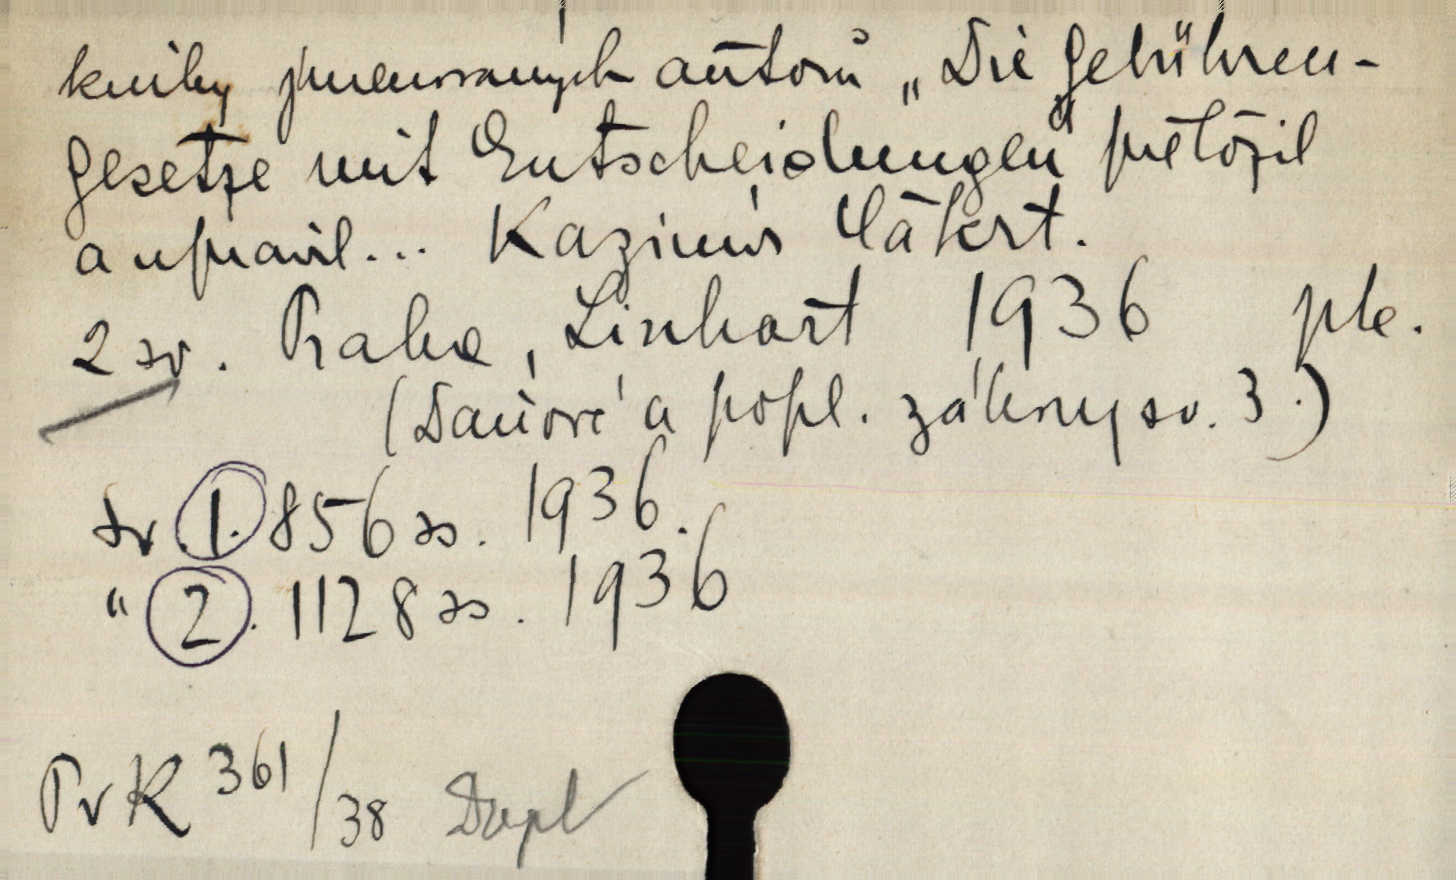 knihy jmenovaných autorů „Die Gebühren-
gesetze mit Entscheidungen" přeložil
a upravil... Kazimír Čákrt.
2 sv. Praha, Linhart 1936 ple.
(Daňové a popl. zákony sv. 3.)
sv 1. 856 ss. 1936.
" 2. 1128 ss. 1936
PvK 361/38 Dupl